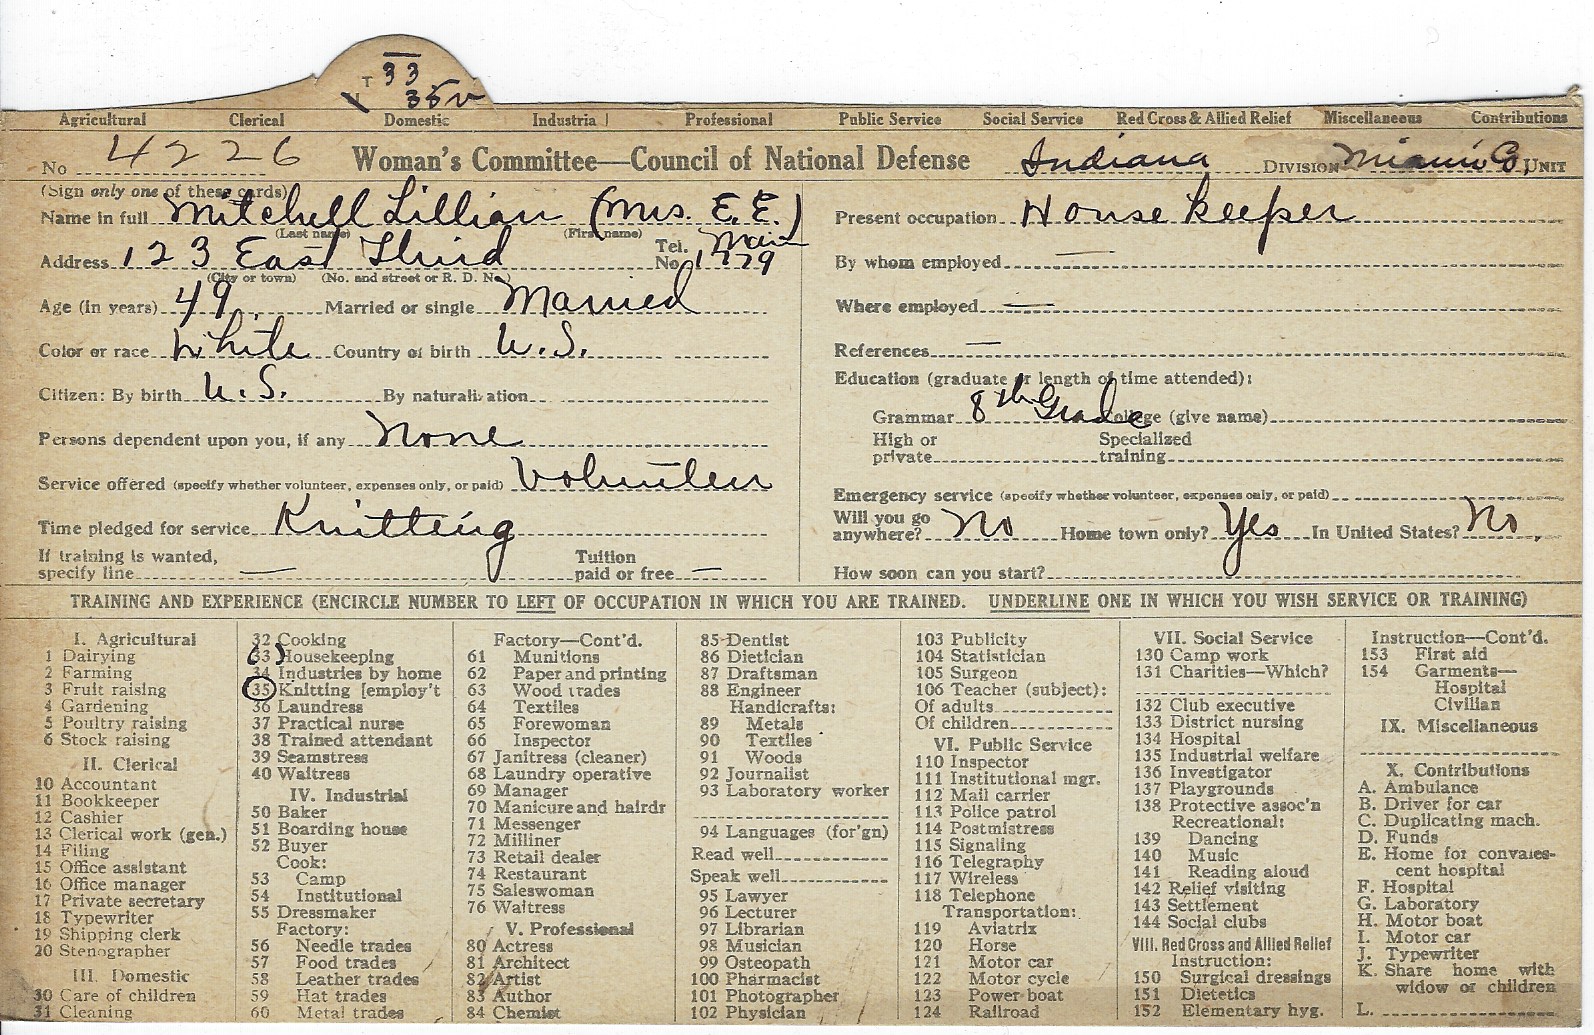 T 33
35 v
Agricultural Clerical Domestic Industrial Professional Public Service Social Service Red Cross & Allied Relief Miscellaneous Contributions
No 4226 Woman's Committee—Council of National Defense Indiana DIVISION Miami Co, UNIT
(Sign only one of these cards)
Name in full Mitchell Lillian (Mrs. E. E.)
(Last name) (First name)
Address 123 East Third Tel. No. Main 1779
(City or town) (No. and street or R. D. No.)
Age (in years) 49. Married or single Married
Color or race White Country of birth U.S.
Citizen: By birth U.S. By naturalization
Persons dependent upon you, if any None
Service offered (specify whether volunteer, expenses only, or paid) Volunteer
Time pledged for service Knitting
If training is wanted, specify line — Tuition paid or free —
Present occupation House keeper
By whom employed —
Where employed —
References —
Education (graduate or length of time attended):
Grammar 8th Grade College (give name)
High or private Specialized training
Emergency service (specify whether volunteer, expenses only, or paid)
Will you go anywhere? No Home town only? Yes In United States? No.
How soon can you start?
TRAINING AND EXPERIENCE (ENCIRCLE NUMBER TO LEFT OF OCCUPATION IN WHICH YOU ARE TRAINED. UNDERLINE ONE IN WHICH YOU WISH SERVICE OR TRAINING)
I. Agricultural
1 Dairying
2 Farming
3 Fruit raising
4 Gardening
5 Poultry raising
6 Stock raising
II. Clerical
10 Accountant
11 Bookkeeper
12 Cashier
13 Clerical work (gen.)
14 Filing
15 Office assistant
16 Office manager
17 Private secretary
18 Typewriter
19 Shipping clerk
20 Stenographer
III. Domestic
30 Care of children
31 Cleaning
32 Cooking
33 Housekeeping
34 Industries by home
35 Knitting [employ't
36 Laundress
37 Practical nurse
38 Trained attendant
39 Seamstress
40 Waitress
IV. Industrial
50 Baker
51 Boarding house
52 Buyer
Cook:
53 Camp
54 Institutional
55 Dressmaker
Factory:
56 Needle trades
57 Food trades
58 Leather trades
59 Hat trades
60 Metal trades
Factory—Cont'd.
61 Munitions
62 Paper and printing
63 Wood trades
64 Textiles
65 Forewoman
66 Inspector
67 Janitress (cleaner)
68 Laundry operative
69 Manager
70 Manicure and hairdr
71 Messenger
72 Milliner
73 Retail dealer
74 Restaurant
75 Saleswoman
76 Waitress
V. Professional
80 Actress
81 Architect
82 Artist
83 Author
84 Chemist
85 Dentist
86 Dietician
87 Draftsman
88 Engineer
Handicrafts:
89 Metals
90 Textiles
91 Woods
92 Journalist
93 Laboratory worker
94 Languages (for'gn)
Read well
Speak well
95 Lawyer
96 Lecturer
97 Librarian
98 Musician
99 Osteopath
100 Pharmacist
101 Photographer
102 Physician
103 Publicity
104 Statistician
105 Surgeon
106 Teacher (subject):
Of adults
Of children
VI. Public Service
110 Inspector
111 Institutional mgr.
112 Mail carrier
113 Police patrol
114 Postmistress
115 Signaling
116 Telegraphy
117 Wireless
118 Telephone
Transportation:
119 Aviatrix
120 Horse
121 Motor car
122 Motor cycle
123 Power boat
124 Railroad
VII. Social Service
130 Camp work
131 Charities—Which?
132 Club executive
133 District nursing
134 Hospital
135 Industrial welfare
136 Investigator
137 Playgrounds
138 Protective assoc'n
Recreational:
139 Dancing
140 Music
141 Reading aloud
142 Relief visiting
143 Settlement
144 Social clubs
VIII. Red Cross and Allied Relief
Instruction:
150 Surgical dressings
151 Dietetics
152 Elementary hyg.
Instruction—Cont'd.
153 First aid
154 Garments—
Hospital
Civilian
IX. Miscellaneous
X. Contributions
A. Ambulance
B. Driver for car
C. Duplicating mach.
D. Funds
E. Home for convales-
cent hospital
F. Hospital
G. Laboratory
H. Motor boat
I. Motor car
J. Typewriter
K. Share home with
widow or children
L.